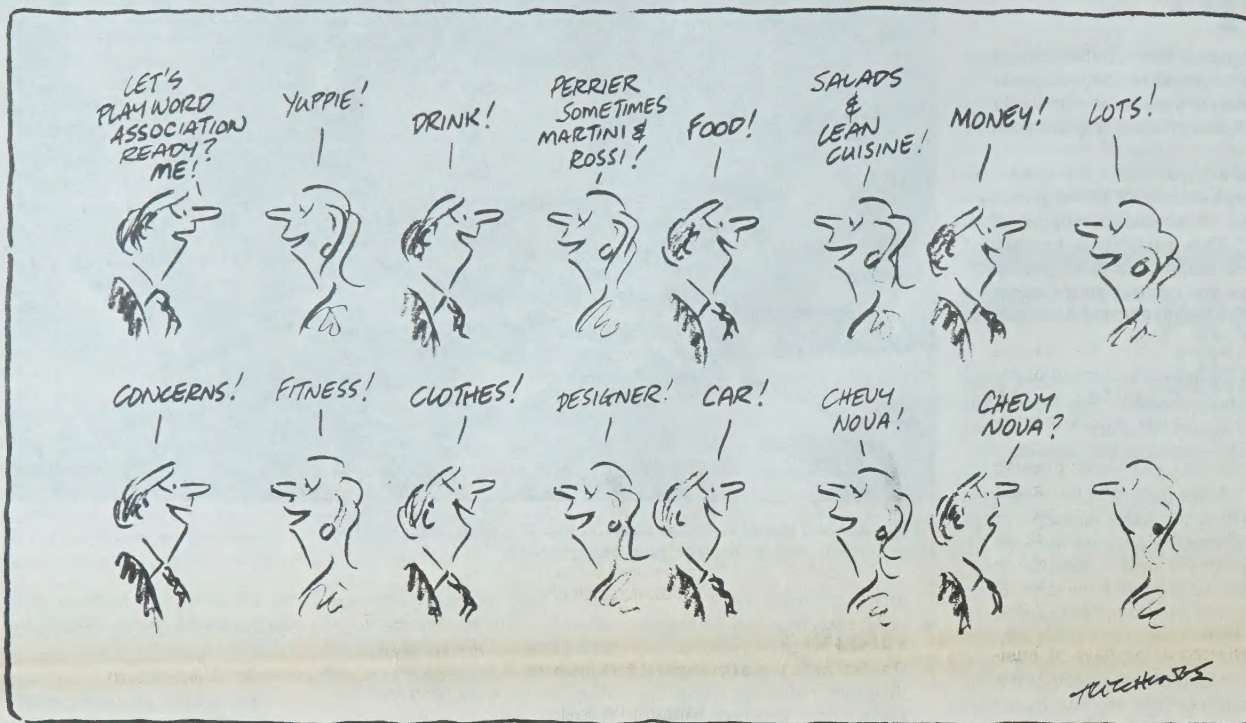 LET'S
PLAY WORD
ASSOCIATION
READY?
ME!
YUPPIE!
DRINK!
PERRIER
SOMETIMES
MARTINI &
ROSSI!
FOOD!
SALADS
&
LEAN
CUISINE!
MONEY!
LOTS!
CONCERNS!
FITNESS!
CLOTHES!
DESIGNER!
CAR!
CHEVY
NOVA!
CHEVY
NOVA?